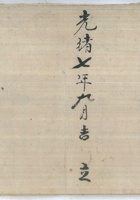 光緒七年九月吉立